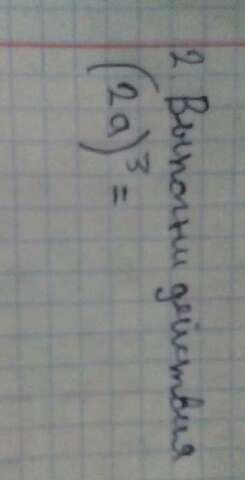 2. Выполни действия
(2a)³ =